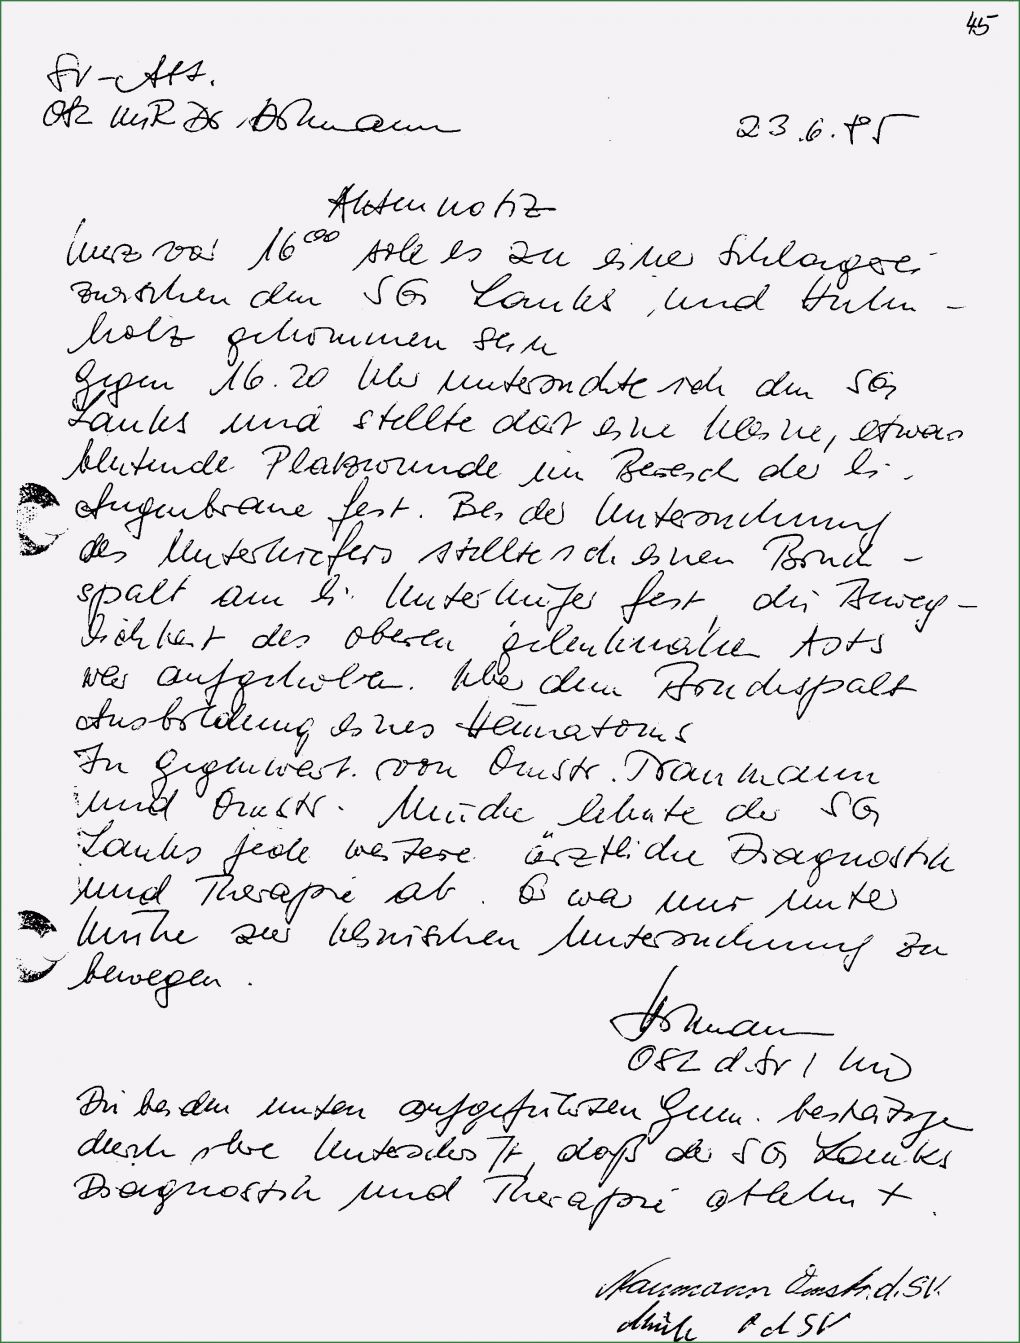 45
SV-Abt.
OSL MR Dr. Hohmann
23.6.85
Aktennotiz
Kurz vor 16⁰⁰ soll es zu einer Schlägerei
zwischen den SG Lauks und Huhn-
holz gekommen sein
Gegen 16.20 Uhr untersuchte ich den SG
Lauks und stellte dort eine kleine, etwas
blutende Platzwunde im Bereich der li.
Augenbraue fest. Bei der Untersuchung
des Unterkiefers stellte ich einen Bruch-
spalt am li. Unterkiefer fest, die Beweg-
lichkeit des oberen gelenknahen Asts
war aufgehoben. Über dem Bruchspalt
Ausbildung eines Hämatoms
In Gegenwart von Omstr.
und Omstr. Mücke lehnte der SG
Lauks jede weitere ärztliche Diagnostik
und Therapie ab. Er war nur unter
Mühe zur klinischen Untersuchung zu
bewegen.
OSL d. SV
Die beiden unten aufgeführten Genn. bestätige
durch ihre Unterschrift, daß der SG Lauks
Diagnostik und Therapie ablehnt.
Naumann Omstr. d. SV.
d SV